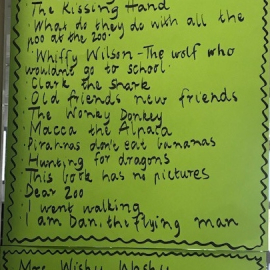 · The Kissing Hand
· What do they do with all the
poo at the zoo·
· Whiffy Wilson - The wolf who
wouldnt go to school·
· Clark the shark
· Old friends new friends
· The Wonky Donkey
· Macca the Alpaca
· Piranhas don't eat bananas
· Hunting for dragons
· This book has no pictures
Dear Zoo
· I went walking
· I am Dan, the flying man
Mrs Wishy Washy